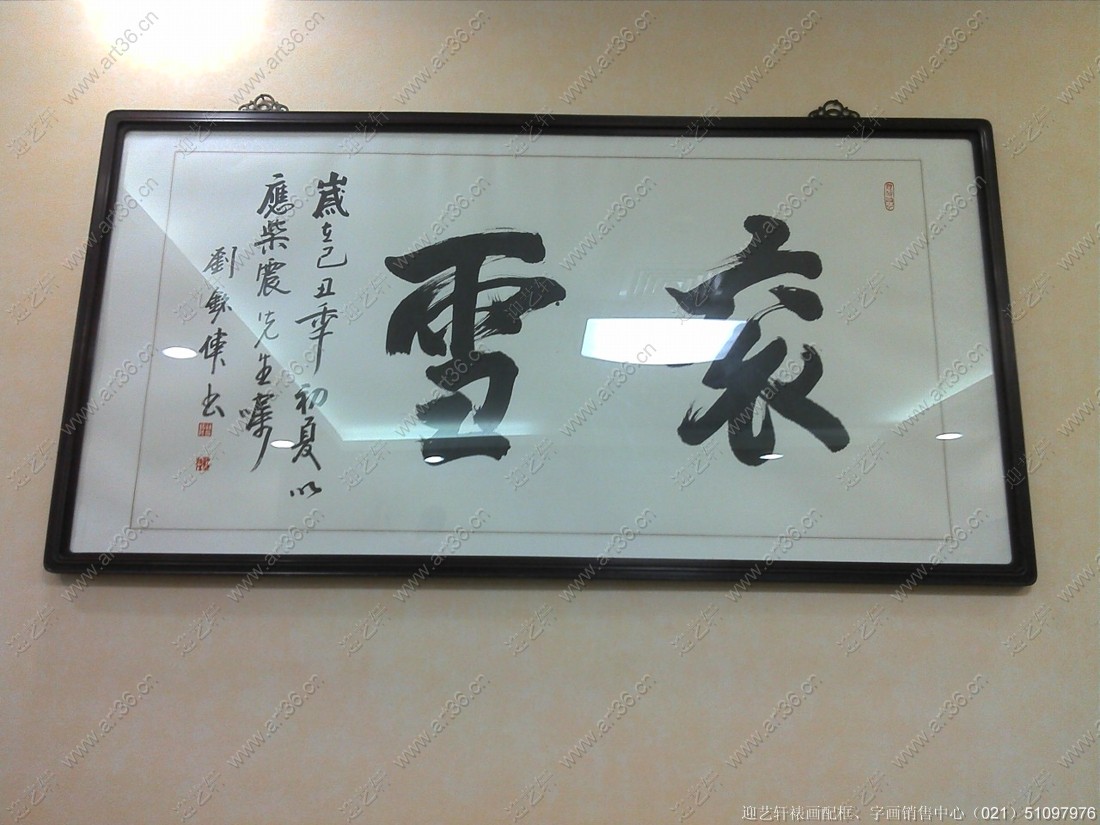 衮雪
歲在己丑年初夏以
應柴震先生囑
劉 偉书
迎艺轩 www.art36.cn
迎艺轩裱画配框、字画销售中心（021）51097976